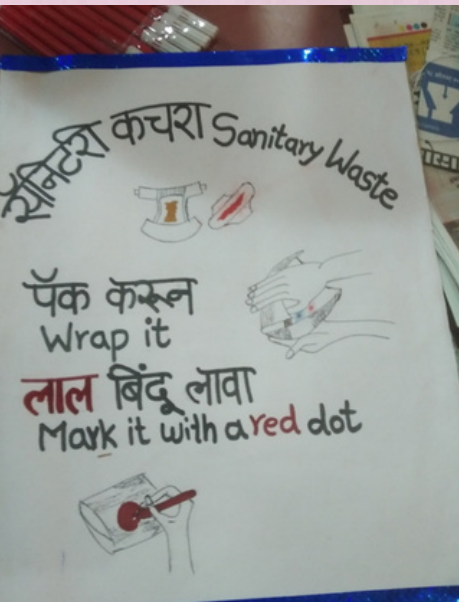 सॅनिटरी कचरा Sanitary Waste
पॅक करून
Wrap it
लाल बिंदू लावा
Mark it with a red dot